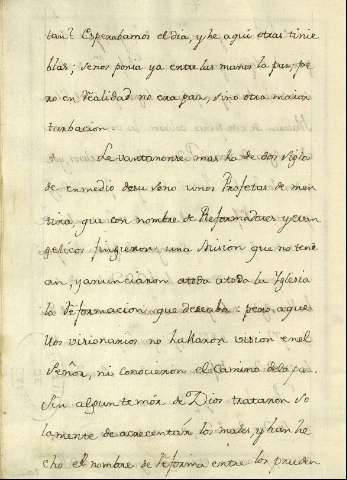 tan? Esperabamos el dia, y he aqui otras tinie
blas; se nos ponia ya entre las manos la paz, pe
ro en realidad no era paz, sino otra maior
turbacion.
Levantaronse mas ha de dos siglos
de enmedio de su seno unos Profetas de men
tira, que con nombre de Reformadores y Evan
gelicos fingieron una Mision que no tení
an, y anunciaron atoda atoda la Yglesia
la Reformacion que deseaba: pero aque
llos visionarios no hallaron vision enel
Señor, ni conocieron el Camino dela paz.
Sin algun temór de Dios trataron so
lamente de acrecentár los males, y han he
cho el nombre de reforma entre los pruden